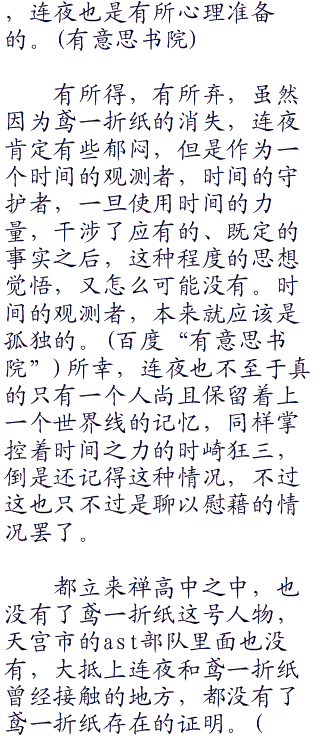 ，连夜也是有所心理准备
的。(有意思书院)
有所得，有所弃，虽然
因为鸢一折纸的消失，连夜
肯定有些郁闷，但是作为一
个时间的观测者，时间的守
护者，一旦使用时间的力
量，干涉了应有的、既定的
事实之后，这种程度的思想
觉悟，又怎么可能没有。时
间的观测者，本来就应该是
孤独的。(百度“有意思书
院”)所幸，连夜也不至于真
的只有一个人尚且保留着上
一个世界线的记忆，同样掌
控着时间之力的时崎狂三，
倒是还记得这种情况，不过
这也只不过是聊以慰藉的情
况罢了。
都立来禅高中之中，也
没有了鸢一折纸这号人物，
天宫市的ast部队里面也没
有，大抵上连夜和鸢一折纸
曾经接触的地方，都没有了
鸢一折纸存在的证明。(